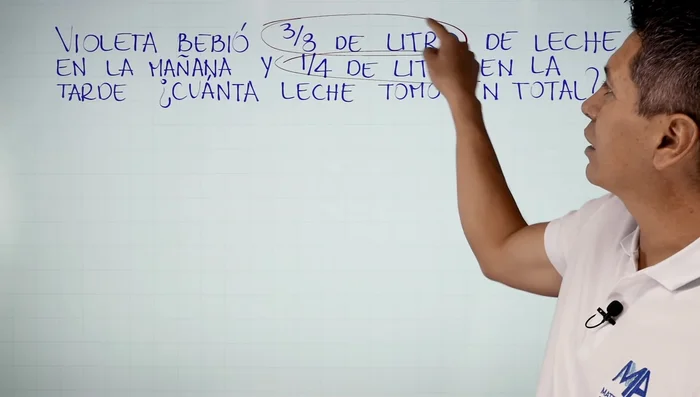 VIOLETA BEBIÓ 3/8 DE LITRO DE LECHE
EN LA MAÑANA Y 1/4 DE LIT EN LA
TARDE ¿CUÁNTA LECHE TOMO N TOTAL?
MA